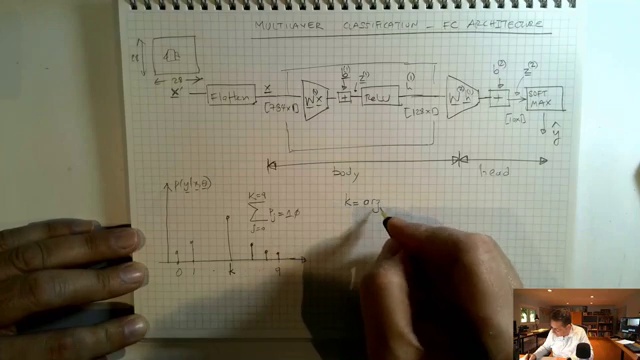 MULTILAYER CLASSIFICATION - FC ARCHITECTURE
28
28
X
Flatten
x
[784x1]
W⁽¹⁾x
b⁽¹⁾
+
z⁽¹⁾
ReLU
[128x1]
b⁽²⁾
+
z⁽²⁾
[10x1]
SOFT
MAX
ŷ
body
head
p(y|x,θ)
K=9
Σ Pj = 1.0
j=0
0 1 k 9
k = arg